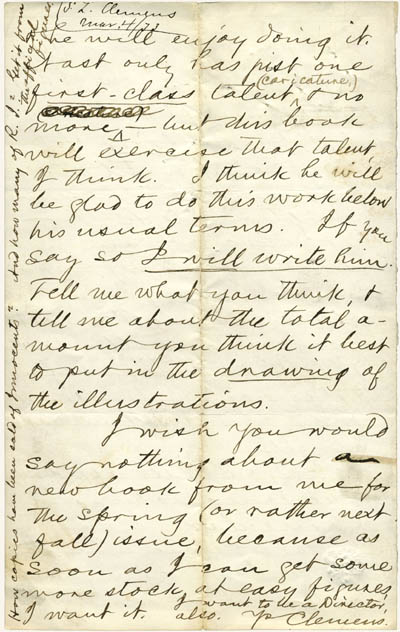 S. L. Clemens
Mar. 4/73
he will enjoy doing it.
Nast only has just one
(caricature,)
first-class talent & no
more — but this book
will exercise that talent,
I think. I think he will
be glad to do this work below
his usual terms. If you
say so I will write him.
Tell me what you think, &
tell me about the total a-
mount you think it best
to put in the drawing of
the illustrations.
I wish you would
say nothing about a
new book from me for
the spring (or rather next
fall) issue, because as
soon as I can get some
more stock, at easy figures,
I want it. I want to be a Director,
also. Yr Clemens.
How copies have been sold of Innocents? And how many of R. I.? Get it from
the official
figures